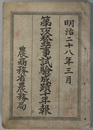 明治二十八年三月
第六次蚕業試験成蹟年報
農商務省農務局